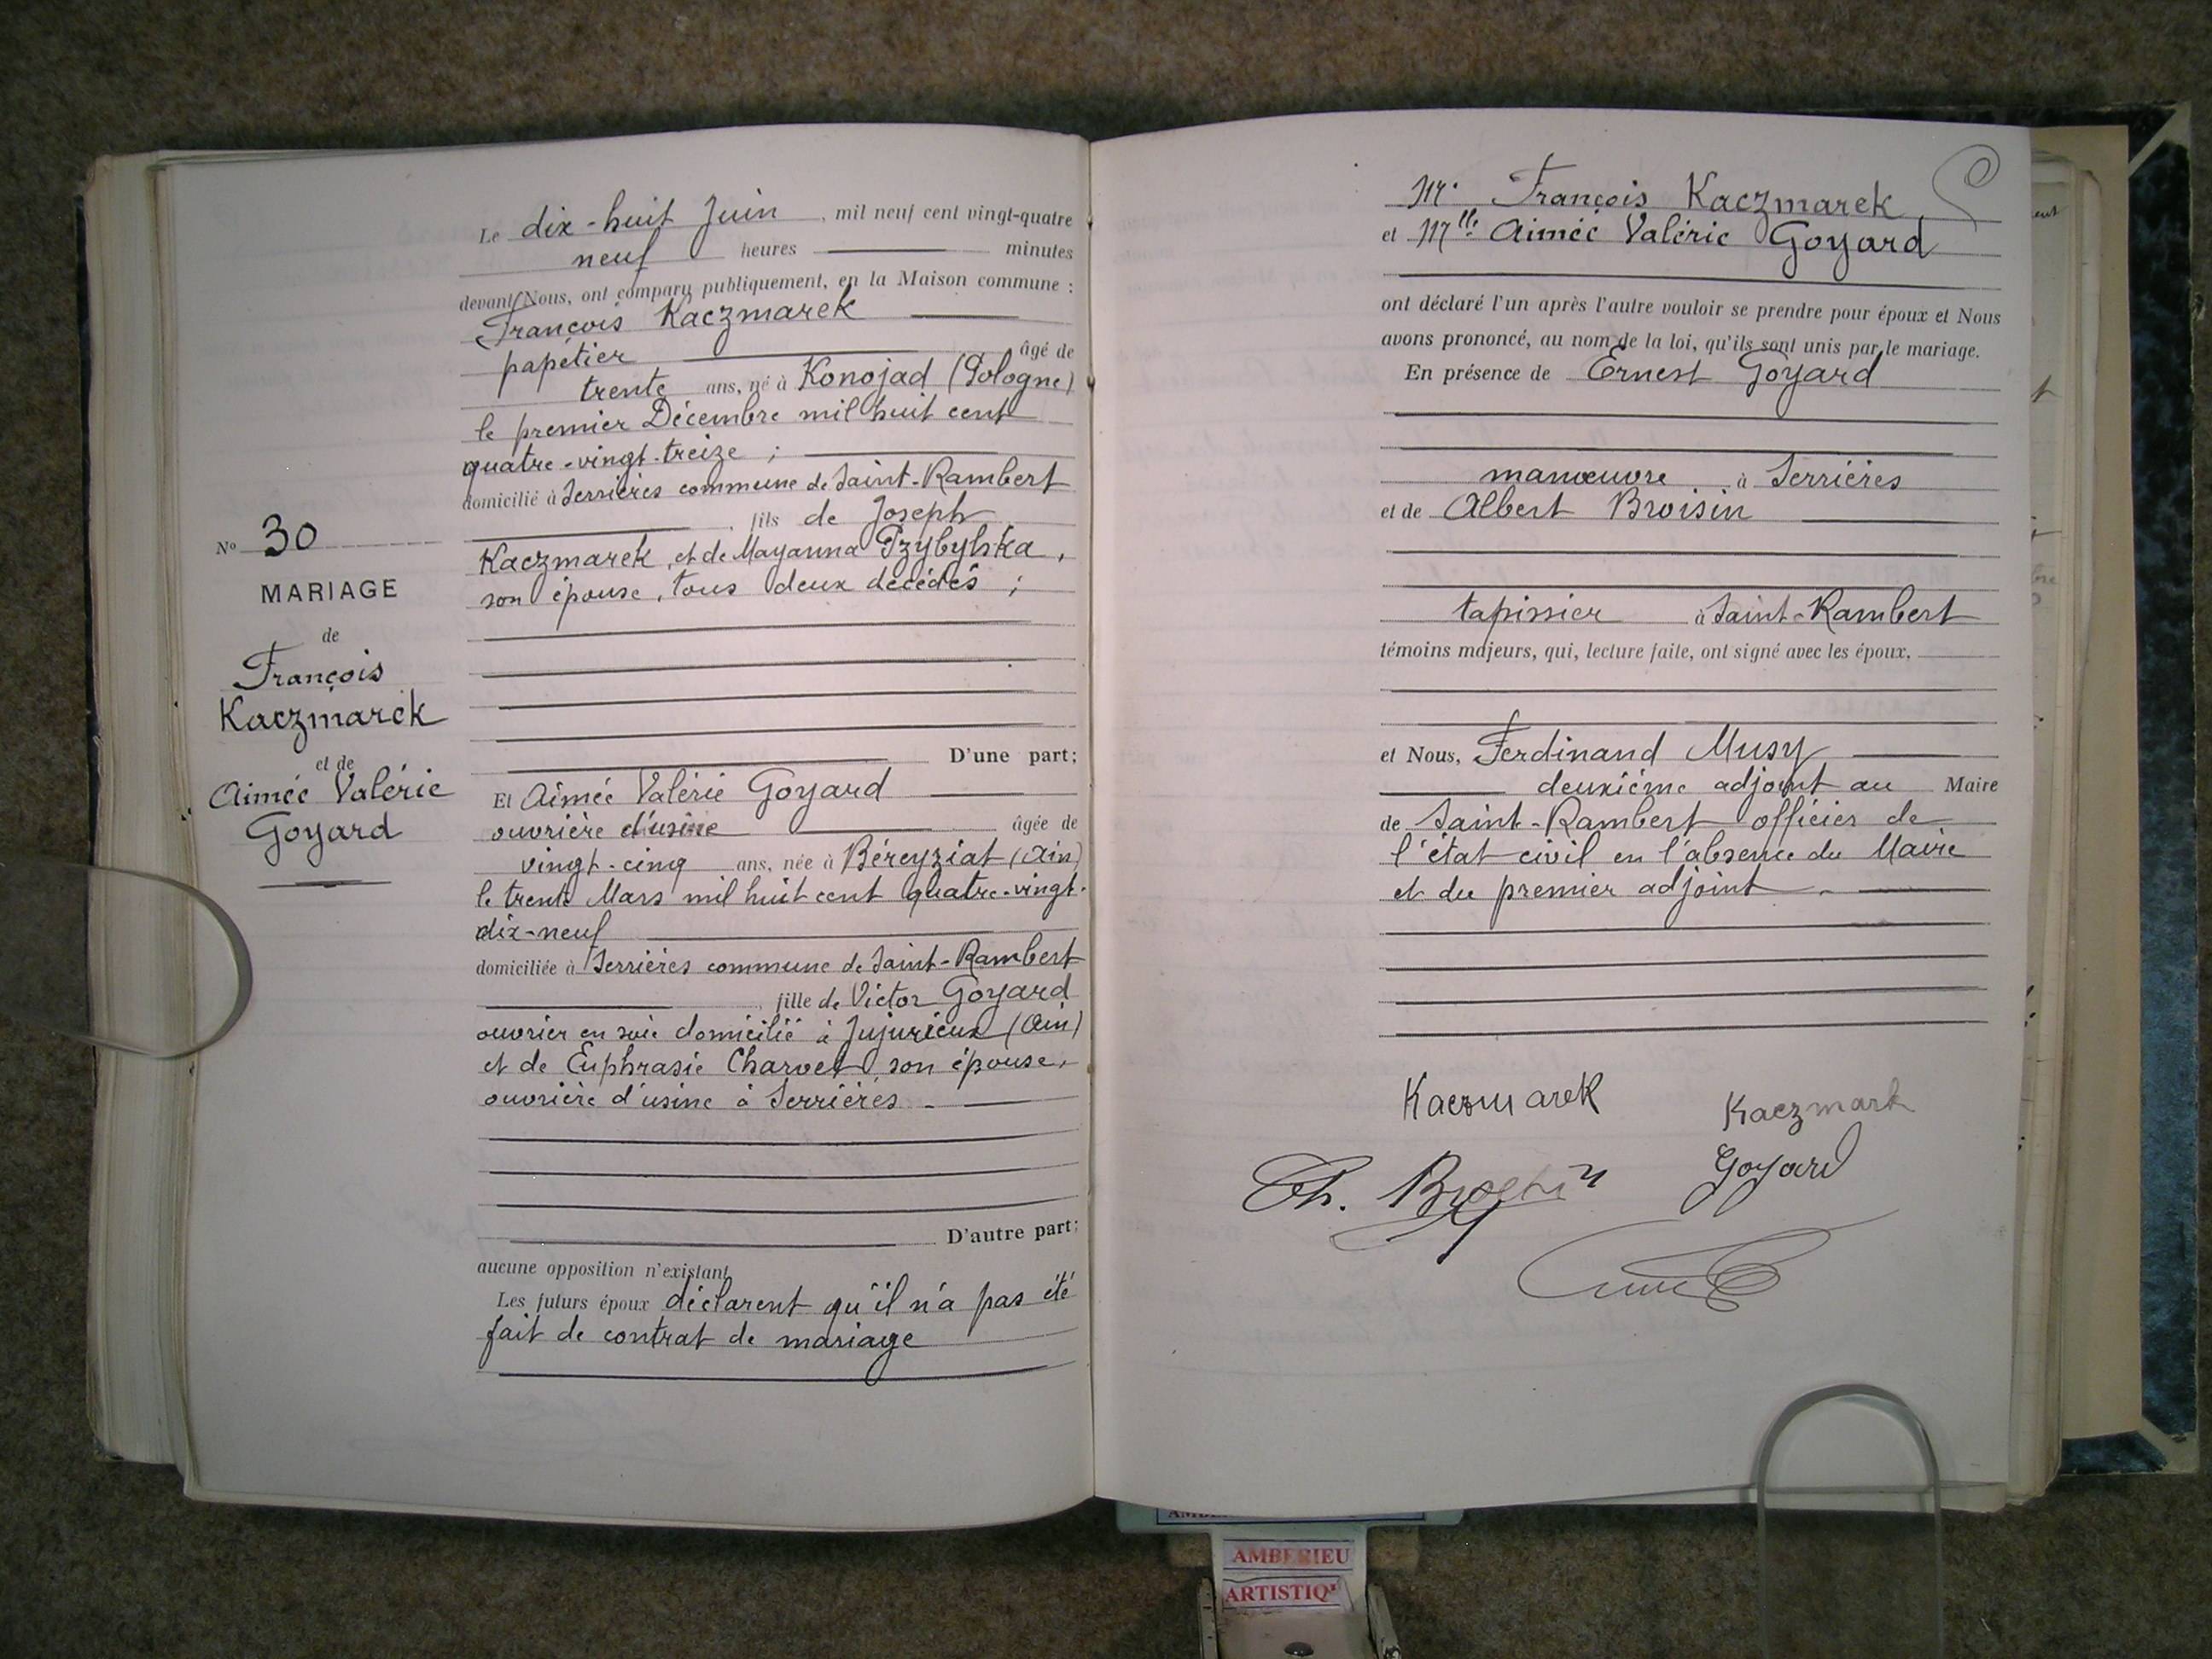 N° 30
MARIAGE
de
François
Kaczmarek
et de
Aimée Valérie
Goyard
Le dix-huit Juin, mil neuf cent vingt-quatre
neuf heures minutes
devant Nous, ont comparu publiquement, en la Maison commune :
François Kaczmarek
papetier âgé de
trente ans, né à Konojad (Pologne)
le premier Décembre mil huit cent
quatre-vingt-treize ;
domicilié à Serrières commune de Saint-Rambert
, fils de Joseph
Kaczmarek, et de Mayanna Pzybylska,
son épouse, tous deux décédés ;
D'une part;
Et Aimée Valérie Goyard
ouvrière d'usine âgée de
vingt-cinq ans, née à Béreyziat (Ain)
le trente Mars mil huit cent quatre-vingt-
dix-neuf
domiciliée à Serrières commune de Saint-Rambert
, fille de Victor Goyard
ouvrier en soie domicilié à Jujurieux (Ain)
et de Euphrasie Charvet, son épouse,
ouvrière d'usine à Serrières.
D'autre part:
aucune opposition n'existant
Les futurs époux déclarent qu'il n'a pas été
fait de contrat de mariage
Mr. François Kaczmarek,
et Mlle Aimée Valérie Goyard
ont déclaré l'un après l'autre vouloir se prendre pour époux et Nous
avons prononcé, au nom de la loi, qu'ils sont unis par le mariage.
En présence de Ernest Goyard
manœuvre à Serrières
et de Albert Broisin
tapissier à Saint-Rambert
témoins majeurs, qui, lecture faite, ont signé avec les époux,
et Nous, Ferdinand Musy
deuxième adjoint au Maire
de Saint-Rambert officier de
l'état civil en l'absence du Maire
et du premier adjoint.
Kaczmarek Kaczmark
Goyard
AMBERIEU
ARTISTIQ